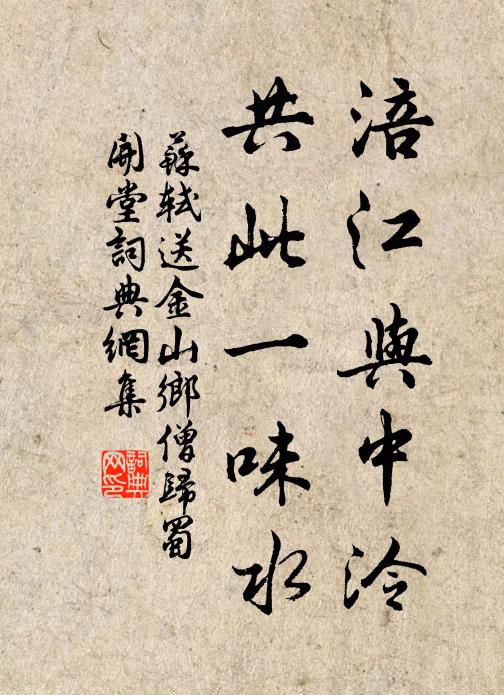 涪江與中泠
共此一味水
蘇軾送金山鄉僧歸蜀
開堂詞典網集
詞典
网印